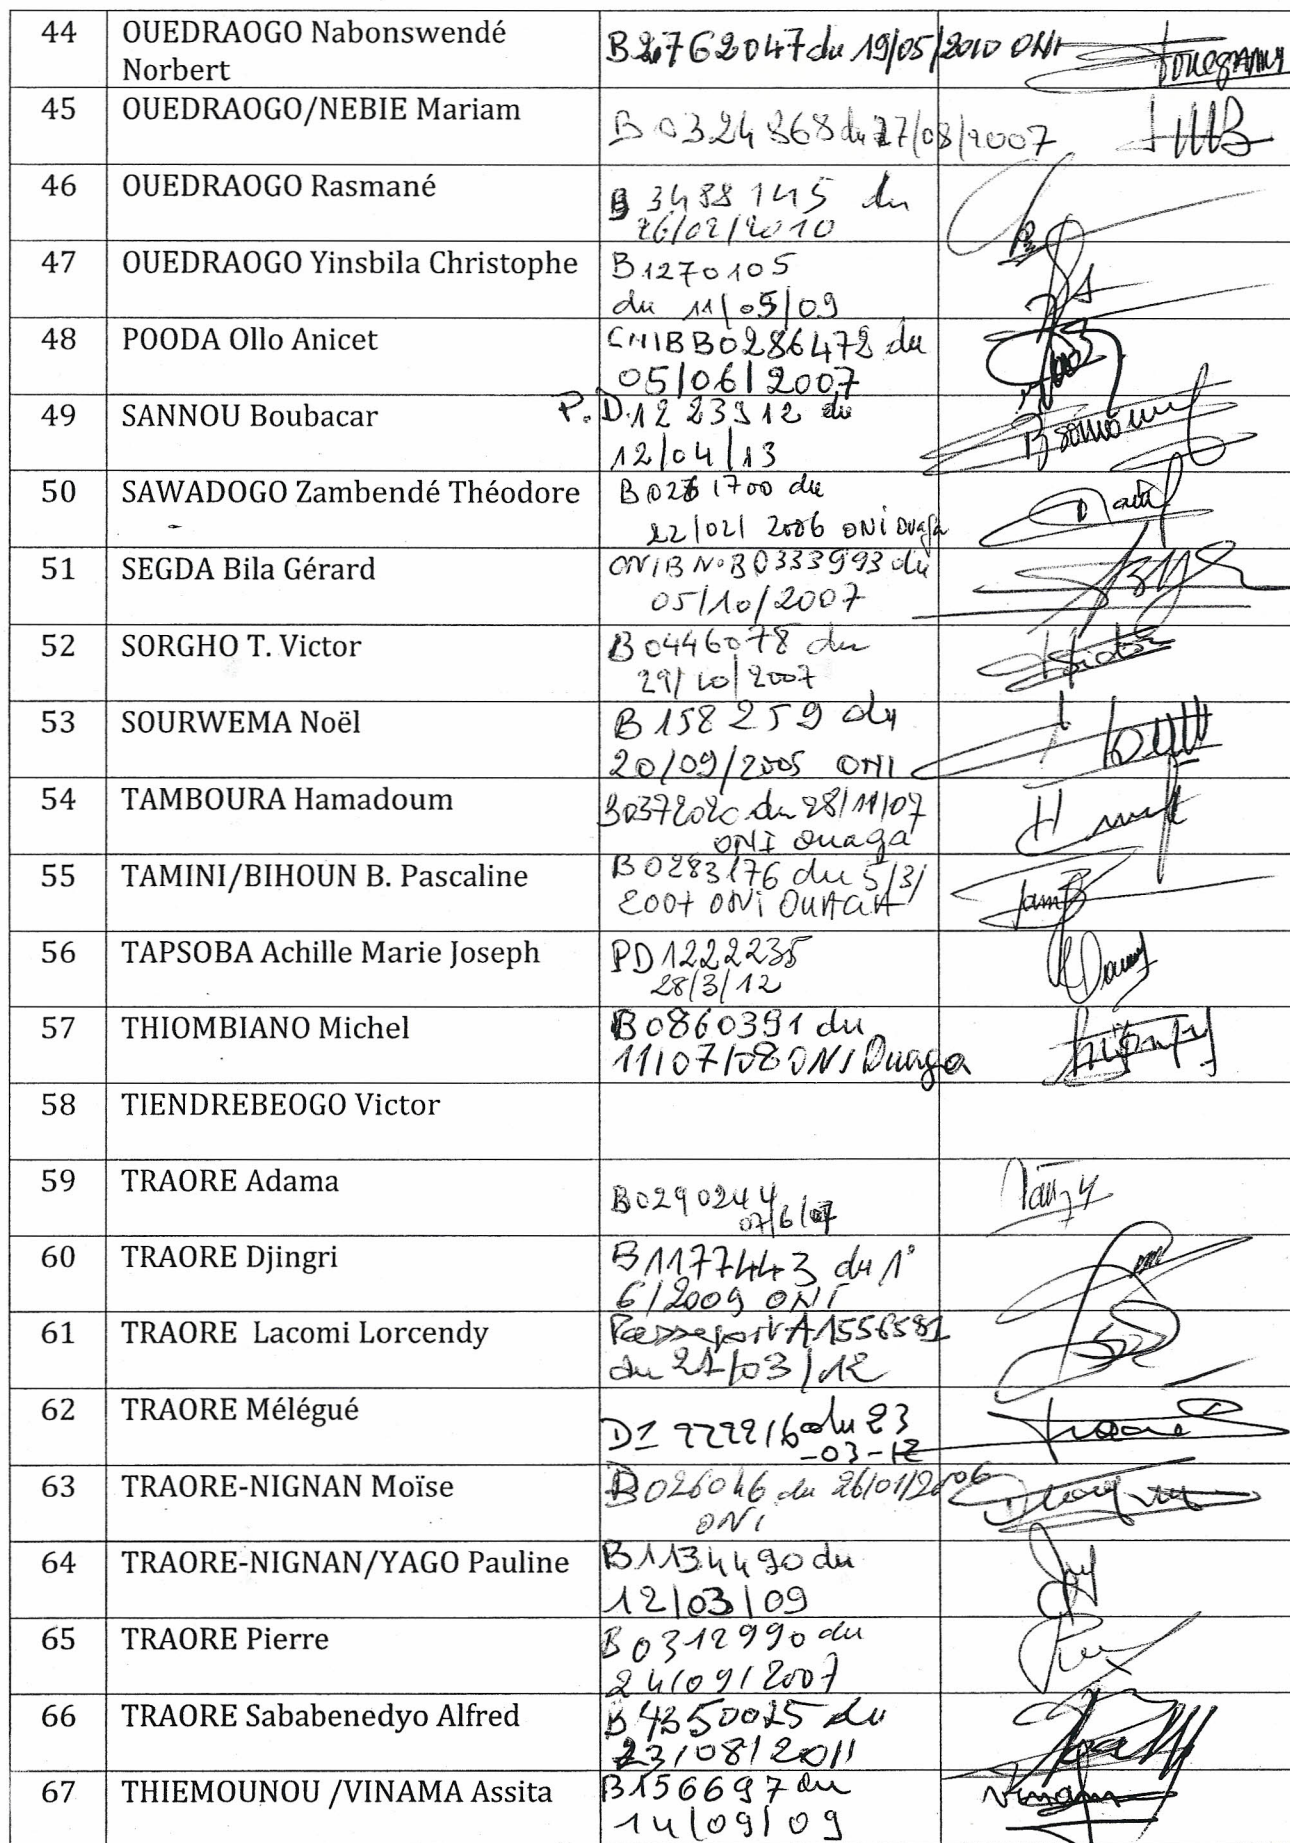 44 OUEDRAOGO Nabonswendé B2762047 du 19/05/2010 ONI
Norbert
45 OUEDRAOGO/NEBIE Mariam
B 0324868 du 27/08/2007
46 OUEDRAOGO Rasmané B 3488145 du
26/02/2010
47 OUEDRAOGO Yinsbila Christophe B1270105
du 11/05/09
48 POODA Ollo Anicet CNIBB0286478 du
05/06/2007
49 SANNOU Boubacar P.D.1223912 du
12/04/13
50 SAWADOGO Zambendé Théodore B0261700 du
22/02/2006 ONI Ouaga
51 SEGDA Bila Gérard CNIB N°B0333993 du
05/10/2007
52 SORGHO T. Victor B0446078 du
29/10/2007
53 SOURWEMA Noël B 158259 du
20/09/2005 ONI
54 TAMBOURA Hamadoum B0372020 du 28/11/07
ONI Ouaga
55 TAMINI/BIHOUN B. Pascaline B0283176 du 5/3/
2007 ONI OUAGA
56 TAPSOBA Achille Marie Joseph PD1222235
28/3/12
57 THIOMBIANO Michel B0860391 du
11/07/08 ONI Ouaga
58 TIENDREBEOGO Victor
59 TRAORE Adama B0290244
07/6/07
60 TRAORE Djingri B1177443 du 1°
6/2009 ONI
61 TRAORE Lacomi Lorcendy Passeport A1556581
du 21/03/12
62 TRAORE Mélégué du 23
-03-12
63 TRAORE-NIGNAN Moïse B026046 du 26/01/2006
ONI
64 TRAORE-NIGNAN/YAGO Pauline B1134490 du
12/03/09
65 TRAORE Pierre B0312990 du
24/09/2007
66 TRAORE Sababenedyo Alfred B4350025 du
23/08/2011
67 THIEMOUNOU /VINAMA Assita B156697 du
14/09/09